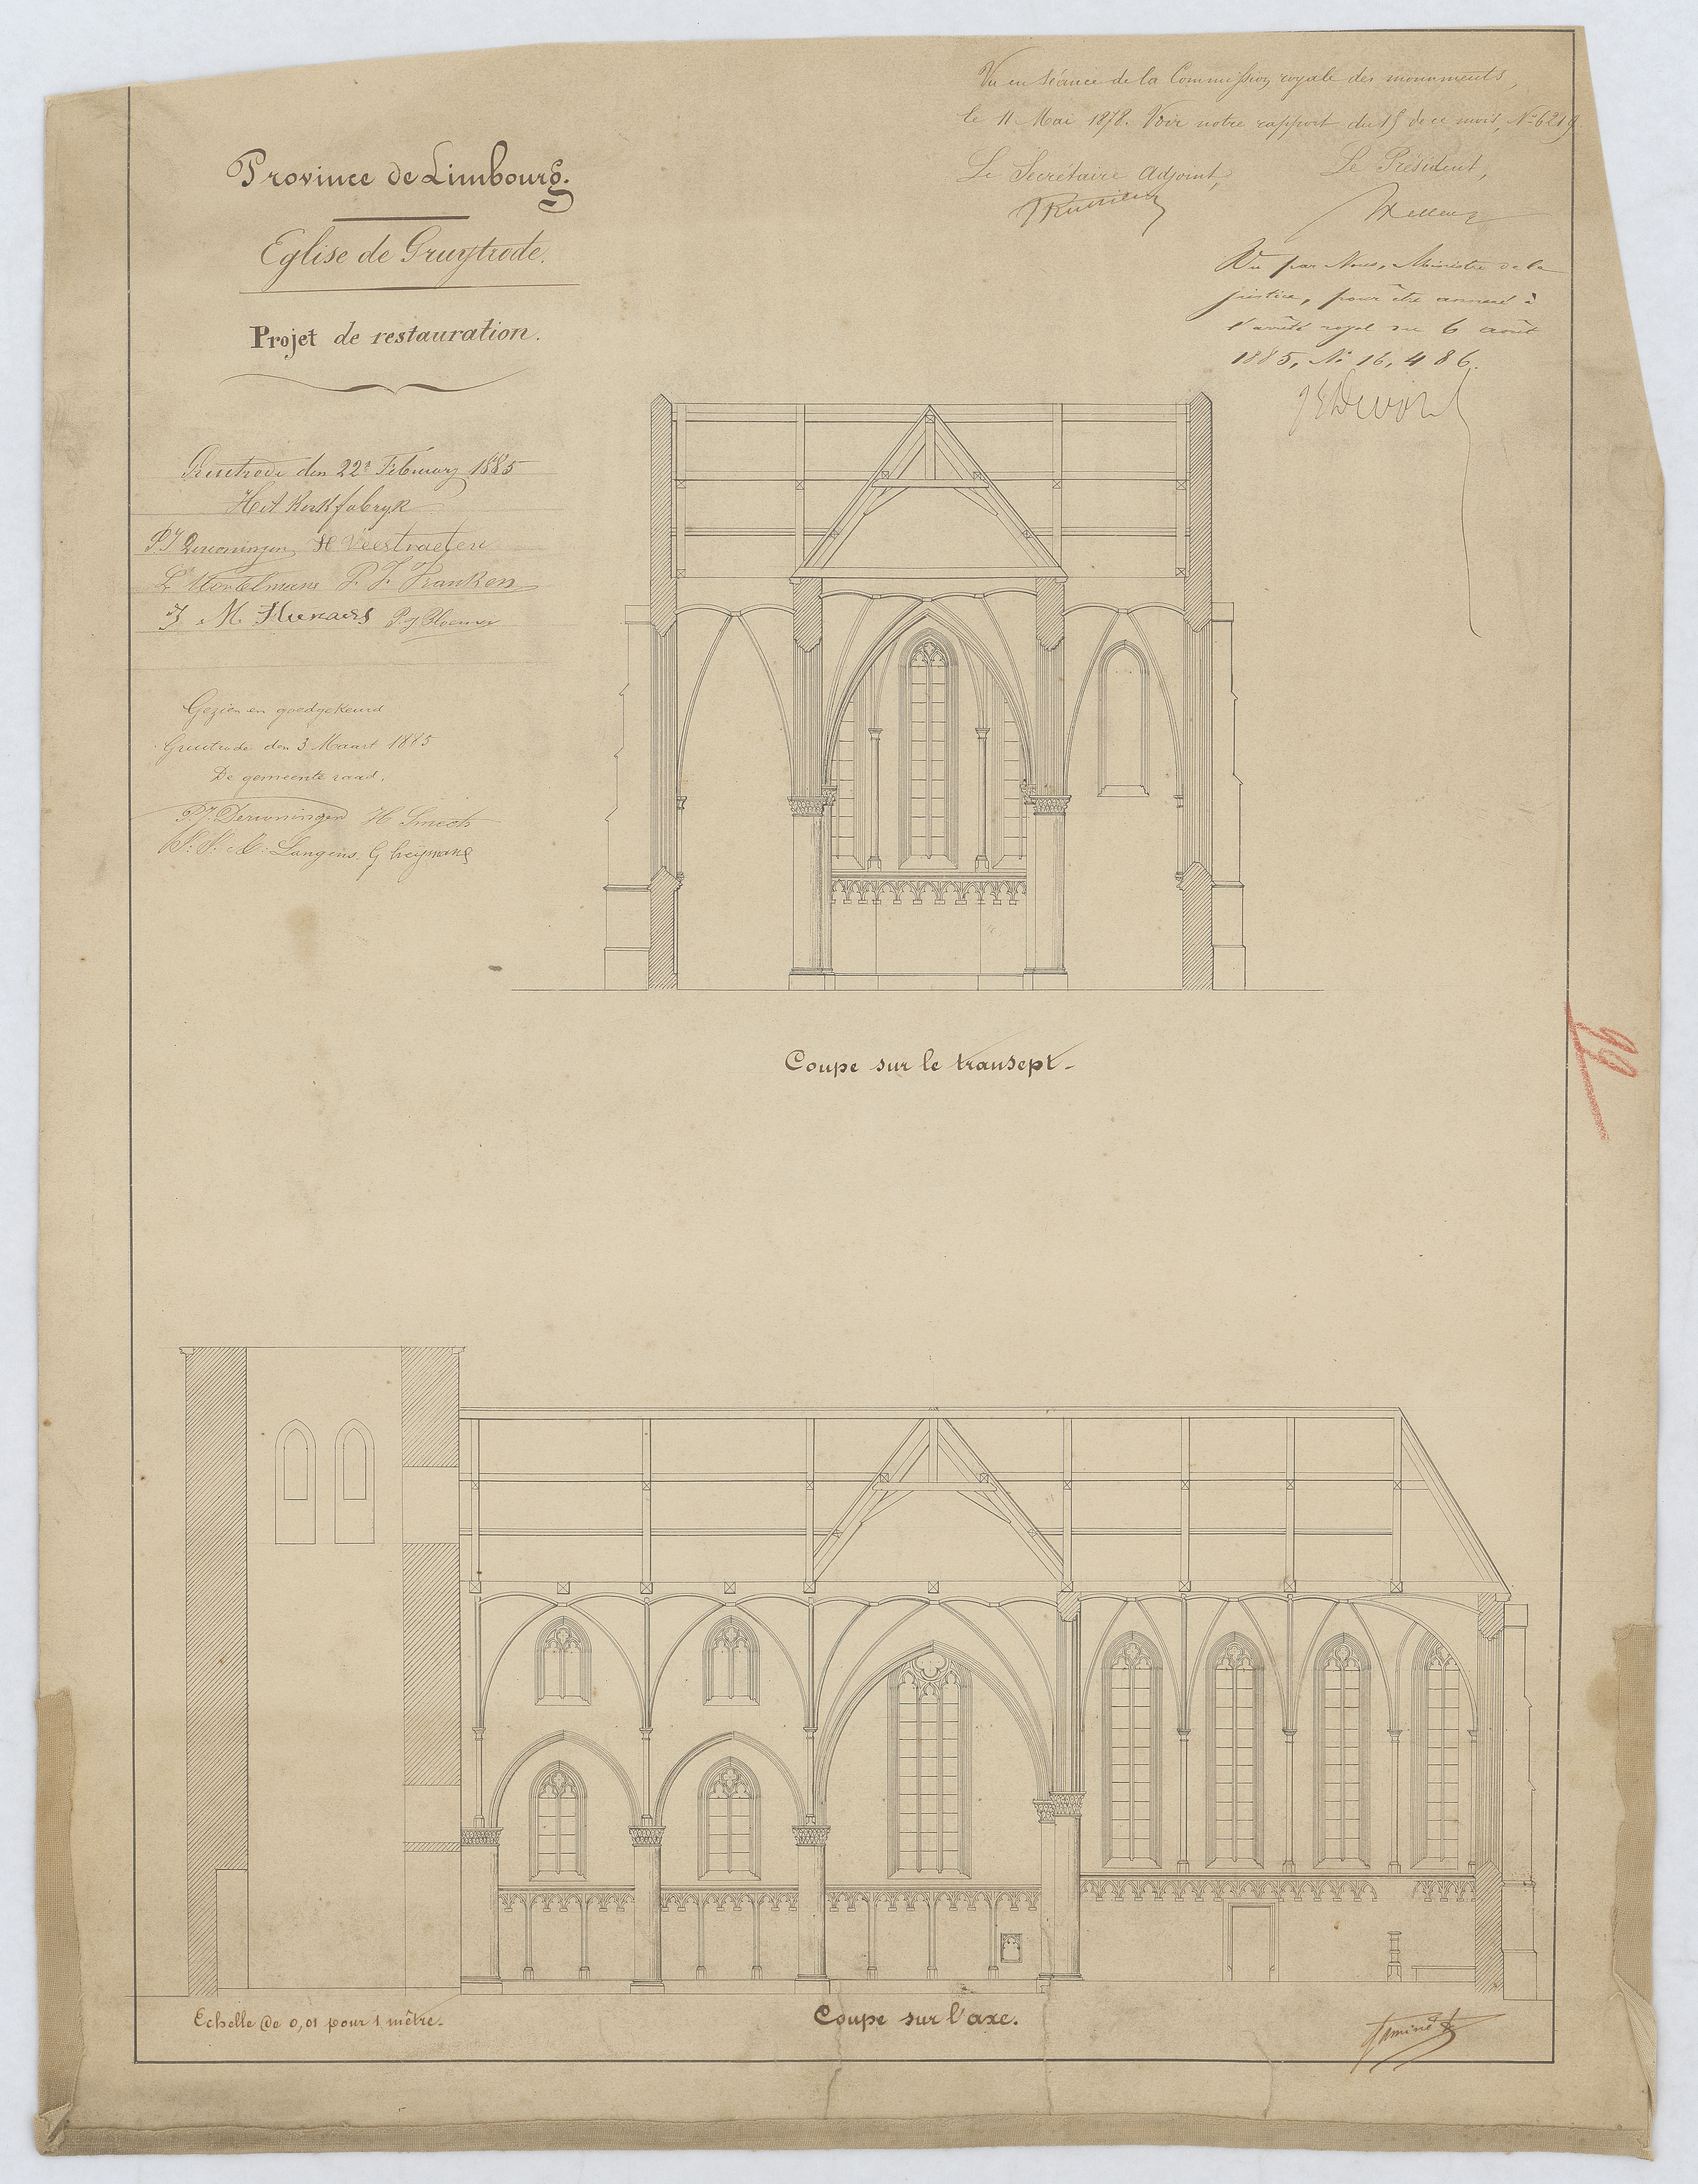 Province de Limbourg.
Eglise de Gruytrode.
Projet de restauration.
Vu en séance de la Commission royale des monuments,
le 11 Mai 1878. Voir notre rapport du 15 de ce mois, Nº 6219
Le Secrétaire adjoint,
Le Président,
Vu par Nous, Ministre de la
justice, pour être annexé à
l'arrêté royal du 6 août
1885, Nº 16,486.
Gruitrode den 22n February 1885
Het Kerkfabryk
H Veestraeten
P. J. Franken
J. M.
Gezien en goedgekeurd
Gruitrode den 3 Maart 1885
De gemeente raad,
H Smeets
Langens
Coupe sur le transept-
Echelle de 0,01 pour 1 mètre.
Coupe sur l'axe.